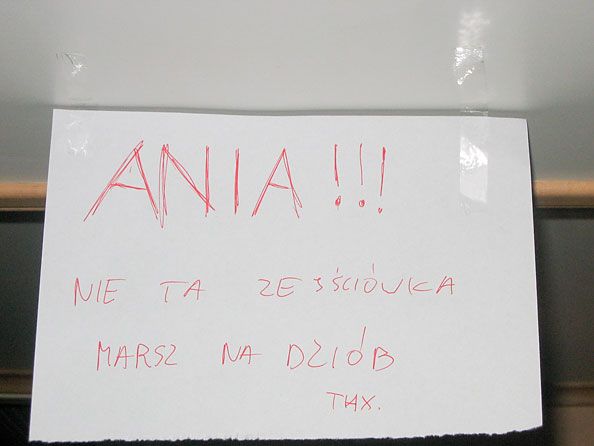 ANIA!!!
NIE TA ZEŚŚCIÓWKA
MARSZ NA DZIÓB
THX.